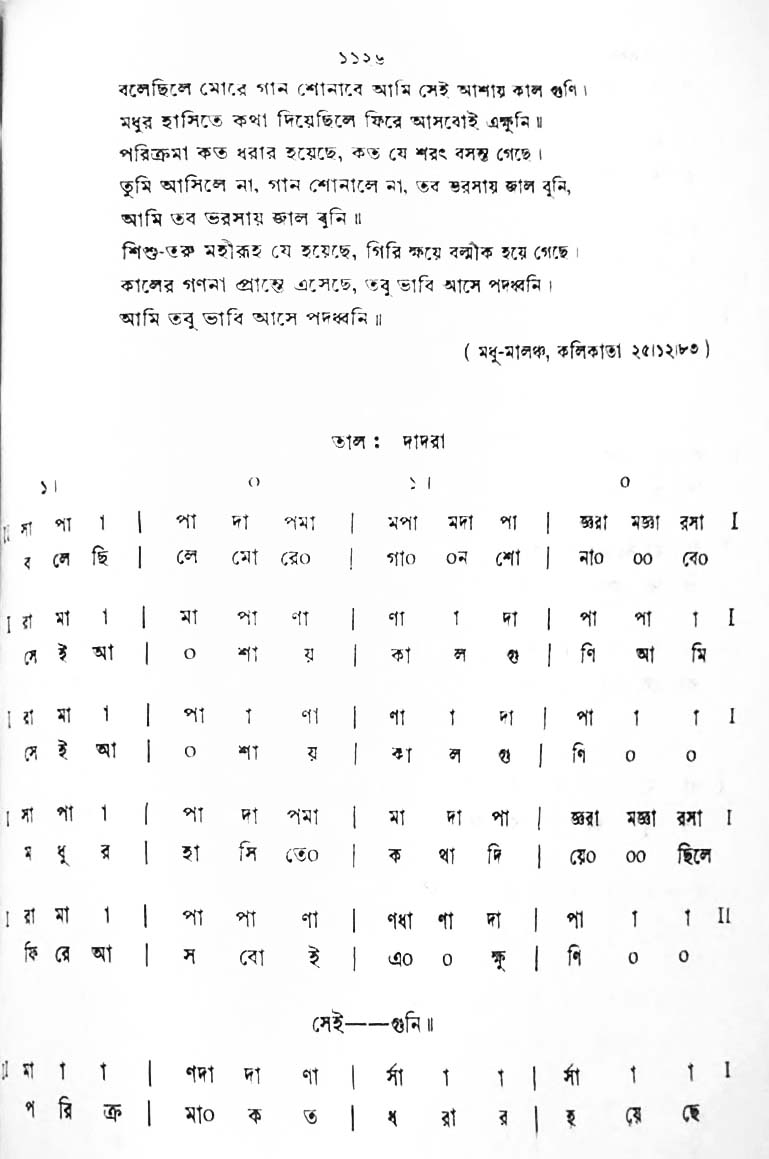 ১১২৬
বলেছিলে মোরে গান শোনাবে আমি সেই আশায় কাল গুণি।
মধুর হাসিতে কথা দিয়েছিলে ফিরে আসবোই এক্ষুনি॥
পরিক্রমা কত ধরার হয়েছে, কত যে শরৎ বসন্ত গেছে।
তুমি আসিলে না, গান শোনালে না, তব ভরসায় জাল বুনি,
আমি তব ভরসায় জাল বুনি॥
শিশু-তরু মহীরূহ যে হয়েছে, গিরি ক্ষয়ে বল্মীক হয়ে গেছে।
কালের গণনা প্রান্তে এসেছে, তবু ভাবি আসে পদধ্বনি।
আমি তবু ভাবি আসে পদধ্বনি॥
( মধু-মালঞ্চ, কলিকাতা ২৫।১২।৮৩ )
তাল : দাদরা
১। ০ ১। ০
II সা পা া | পা দা পমা | মপা মদা পা | জ্ঞরা মজ্ঞা রসা I
ব লে ছি | লে মো রে০ | গা০ ০ন শো | না০ ০০ বে০
I রা মা া | মা পা ণা | ণা া দা | পা পা া I
সে ই আ | ০ শা য় | কা ল গু | ণি আ মি
I রা মা া | পা া ণা | ণা া দা | পা া া I
সে ই আ | ০ শা য় | কা ল গু | ণি ০ ০
I সা পা া | পা দা পমা | মা দা পা | জ্ঞরা মজ্ঞা রসা I
ম ধু র | হা সি তে০ | ক থা দি | য়ে০ ০০ ছিলে
I রা মা া | পা পা ণা | ণধা ণা দা | পা া া II
ফি রে আ | স বো ই | এ০ ০ ক্ষু | ণি ০ ০
সেই——গুনি॥
II মা া া | ণদা দা ণা | র্সা া া | র্সা া া I
প রি ক্র | মা০ ক ত | ধ রা র | হ য়ে ছে